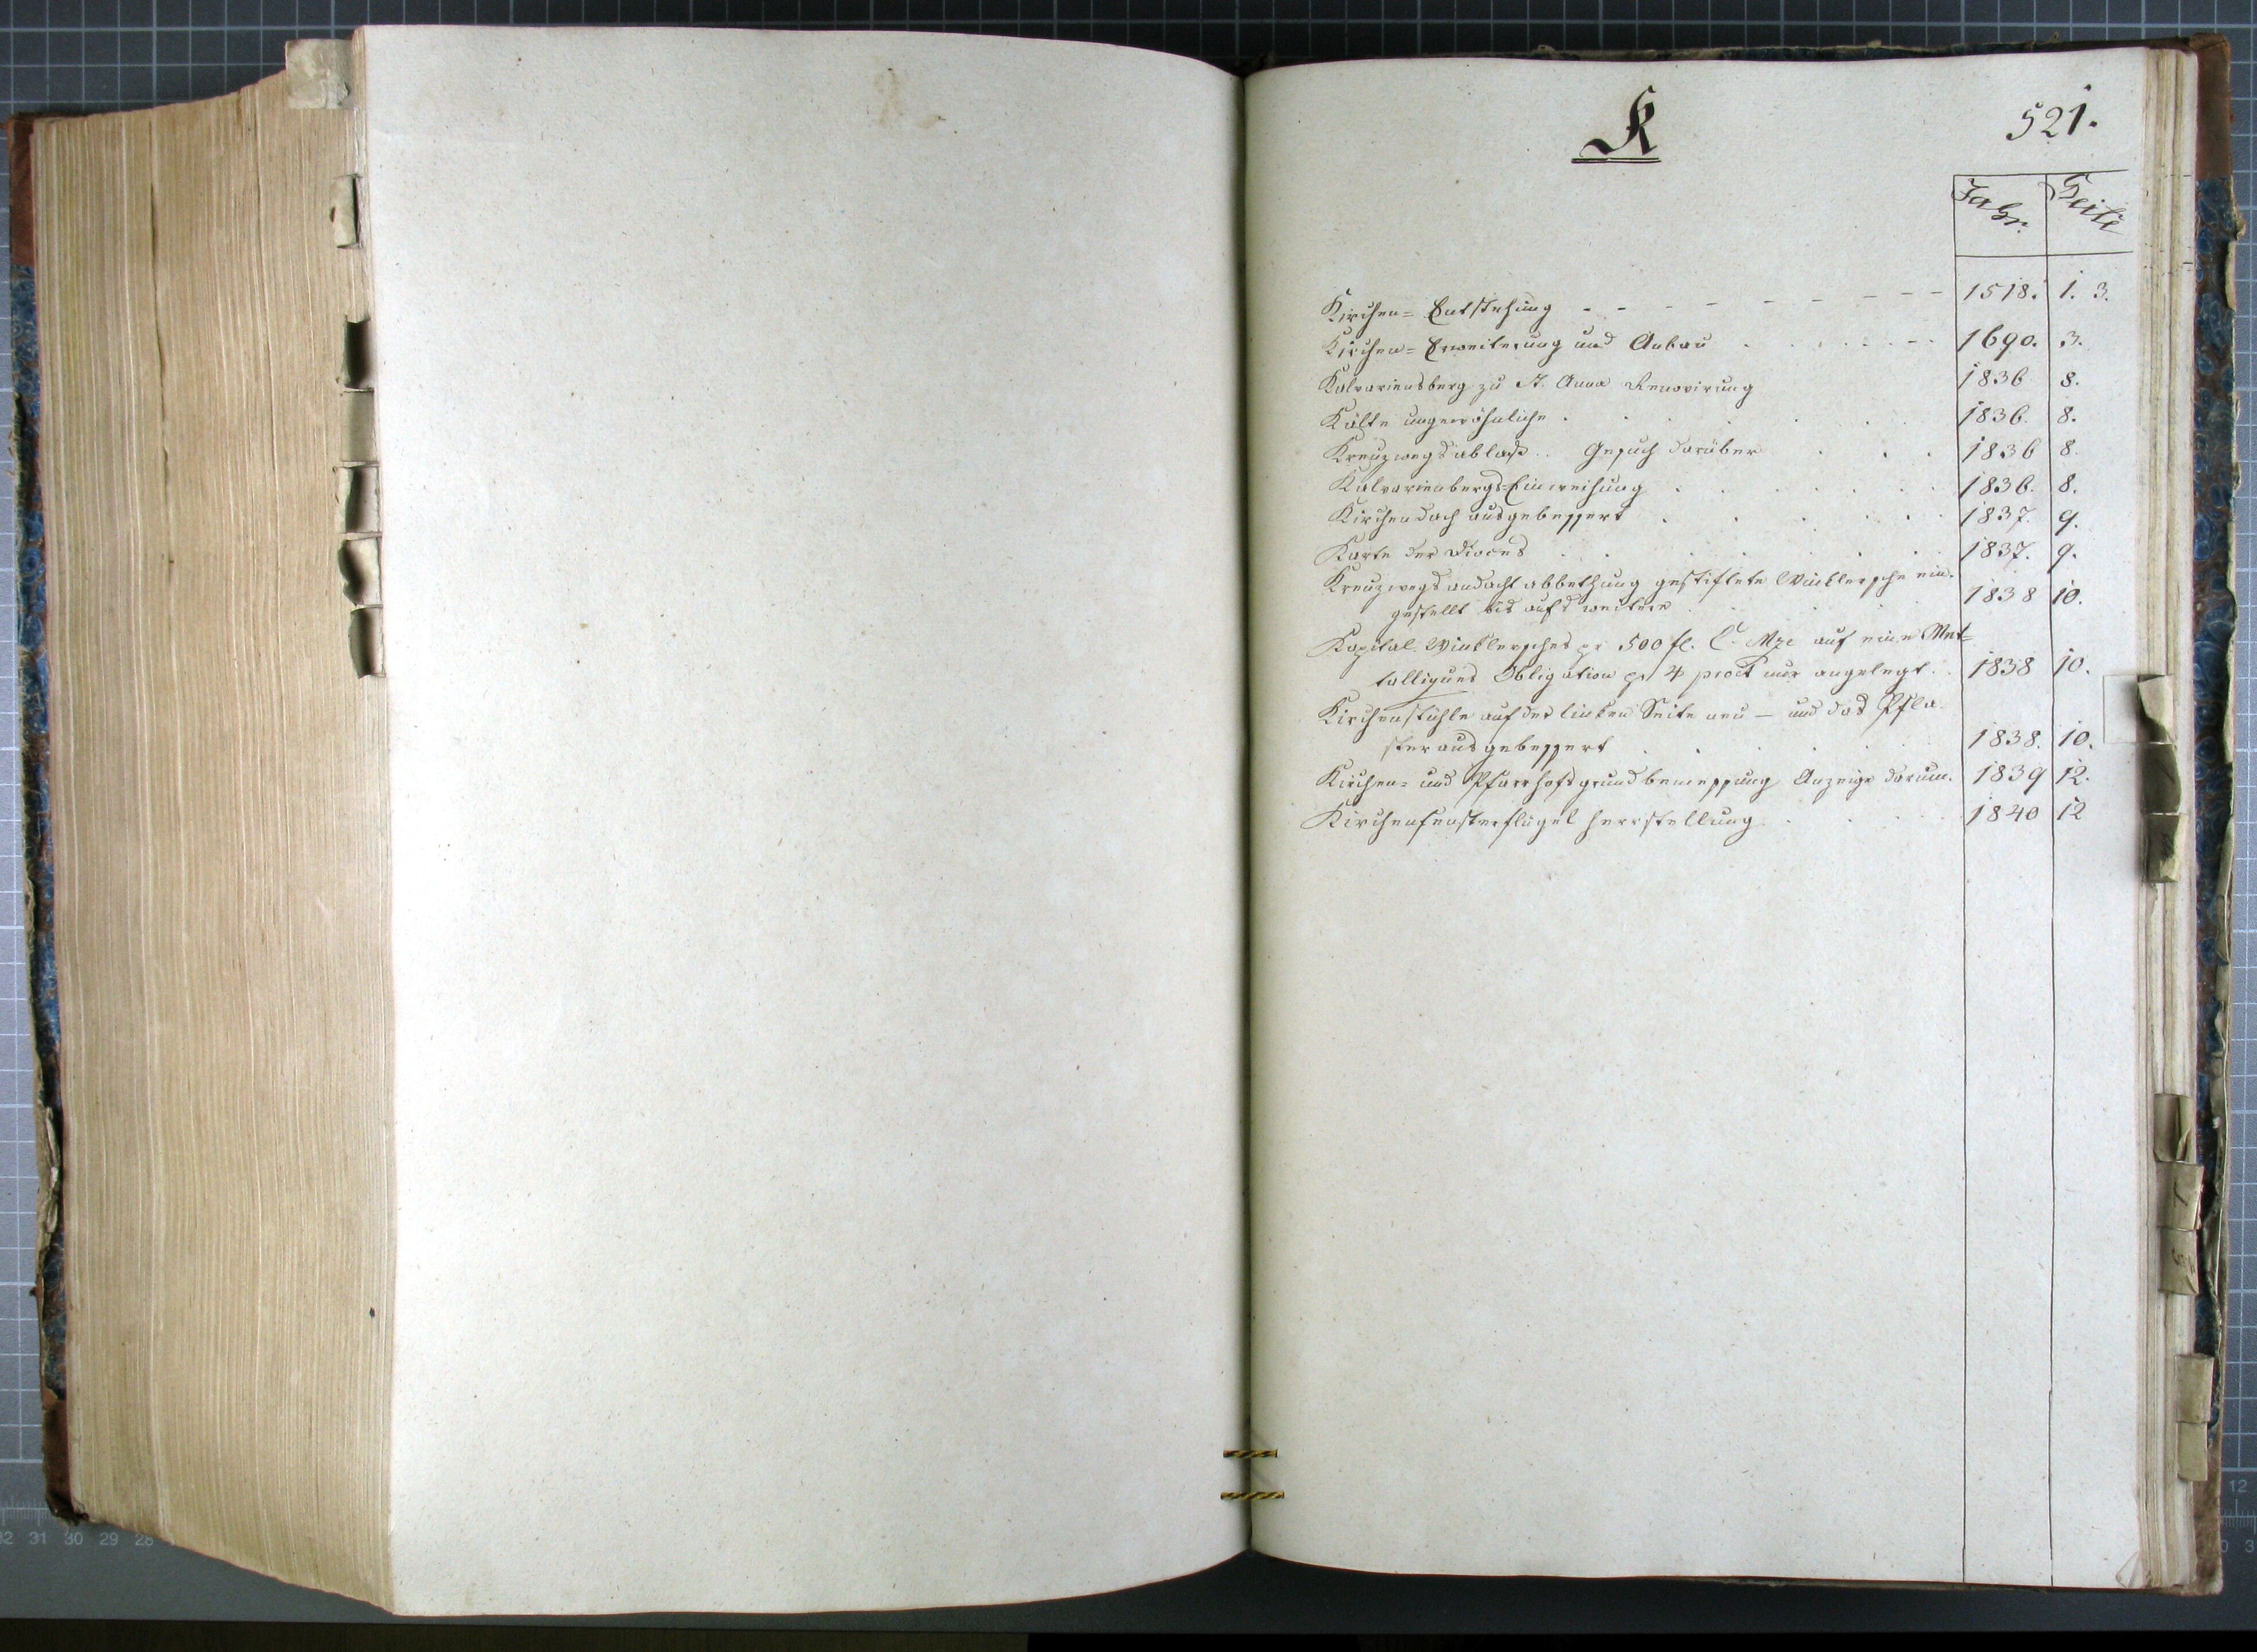 K
521.
Jahr. Seite
Kirchen= Entstehung - - - - - - - - 1518. 1. 3.
Kirchen= Erweiterung und Anbau . . . . . - - 1690. 3.
Kalvariensberg zu St. Anna Renovirung 1836 8.
Kälte ungewöhnliche . . . . . . 1836. 8.
Kreuzwegsablaß .. Gesuch darüber . . . 1836 8.
Kalvarienbergs=Einweihung . . . . . . 1836. 8.
Kirchendach ausgebessert . . . . . . 1837. 9.
Karte der Diöces . . . . . . . 1837. 9.
Kreuzwegsandacht abbethung gestiftete Winklersche ein-
gestellt bis aufs weitere . . . . 1838 10.
Kapital Winklersches pr 500 fl. C. Mze auf eine Met=
talliques Obligation pr 4 proct nur angelegt. . 1838 10.
Kirchenstühle auf der linken Seite neu — und das Pfla-
ster ausgebessert . . . . . . 1838. 10.
Kirchen= und Pfarrhofsgrundbemessung Anzeige darum. 1839 12.
Kirchenfensterflügel herrstellung . . . . . 1840 12